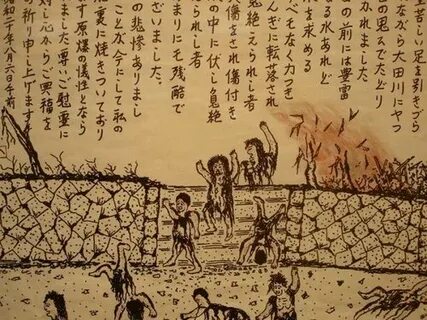 苦しい足を引きづら
ながら太田川にやつ
の思いでたどり
かれました。
の前には豊富
る水あれど
水を求める
べもなく力つき
んぎに転落され
傷をされ傷付き
息絶えられし者
の中に伏し息絶
えられし者
まりにも残酷で
ざいました。
の悲惨ありまし
ことが今にして私の
裏に焼きついており
す原爆の犠牲となら
ました尊いご慰霊に
対し心からご冥福を
祈り申し上げます
和二十年八月六日午前